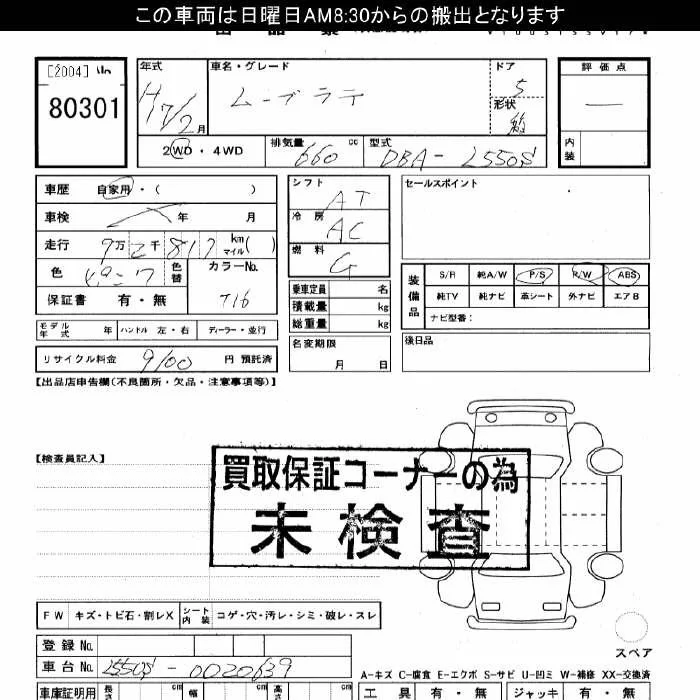 この車両は日曜日AM8:30からの搬出となります
[2004]
80301
年式
H17/2月
車名・グレード
ムーブラテ
ドア
5
形状
評価点
—
内装
2WD・4WD
排気量
660 cc
型式
DBA-L550S
車歴 自家用・( )
車検 年 月
走行 9万2千817 km マイル( )
色
色替
カラーNo.
T16
保証書 有・無
シフト
AT
冷房
AC
燃料
G
乗車定員 名
積載量 kg
総重量 kg
セールスポイント
装備品
S/R 純A/W P/S R/W ABS
純TV 純ナビ 革シート 外ナビ エアB
ナビ型番:
モデル年式 年 ハンドル 左・右 ディーラー・並行
リサイクル料金 9100 円 預託済
名変期限
月 日
後日品
【出品店申告欄(不良箇所・欠品・注意事項等)】
【検査員記入】
買取保証コーナーの為
未検査
FW キズ・トビ石・割レX シート内装 コゲ・穴・汚レ・シミ・破レ・スレ
スペア
登録No.
車台No. L550S-0020639
A-キズ C-腐食 E-エクボ S-サビ U-凹ミ W-補修 XX-交換済
車庫証明用 長さ cm 幅 cm 高さ cm
工具 有・無 ジャッキ 有・無